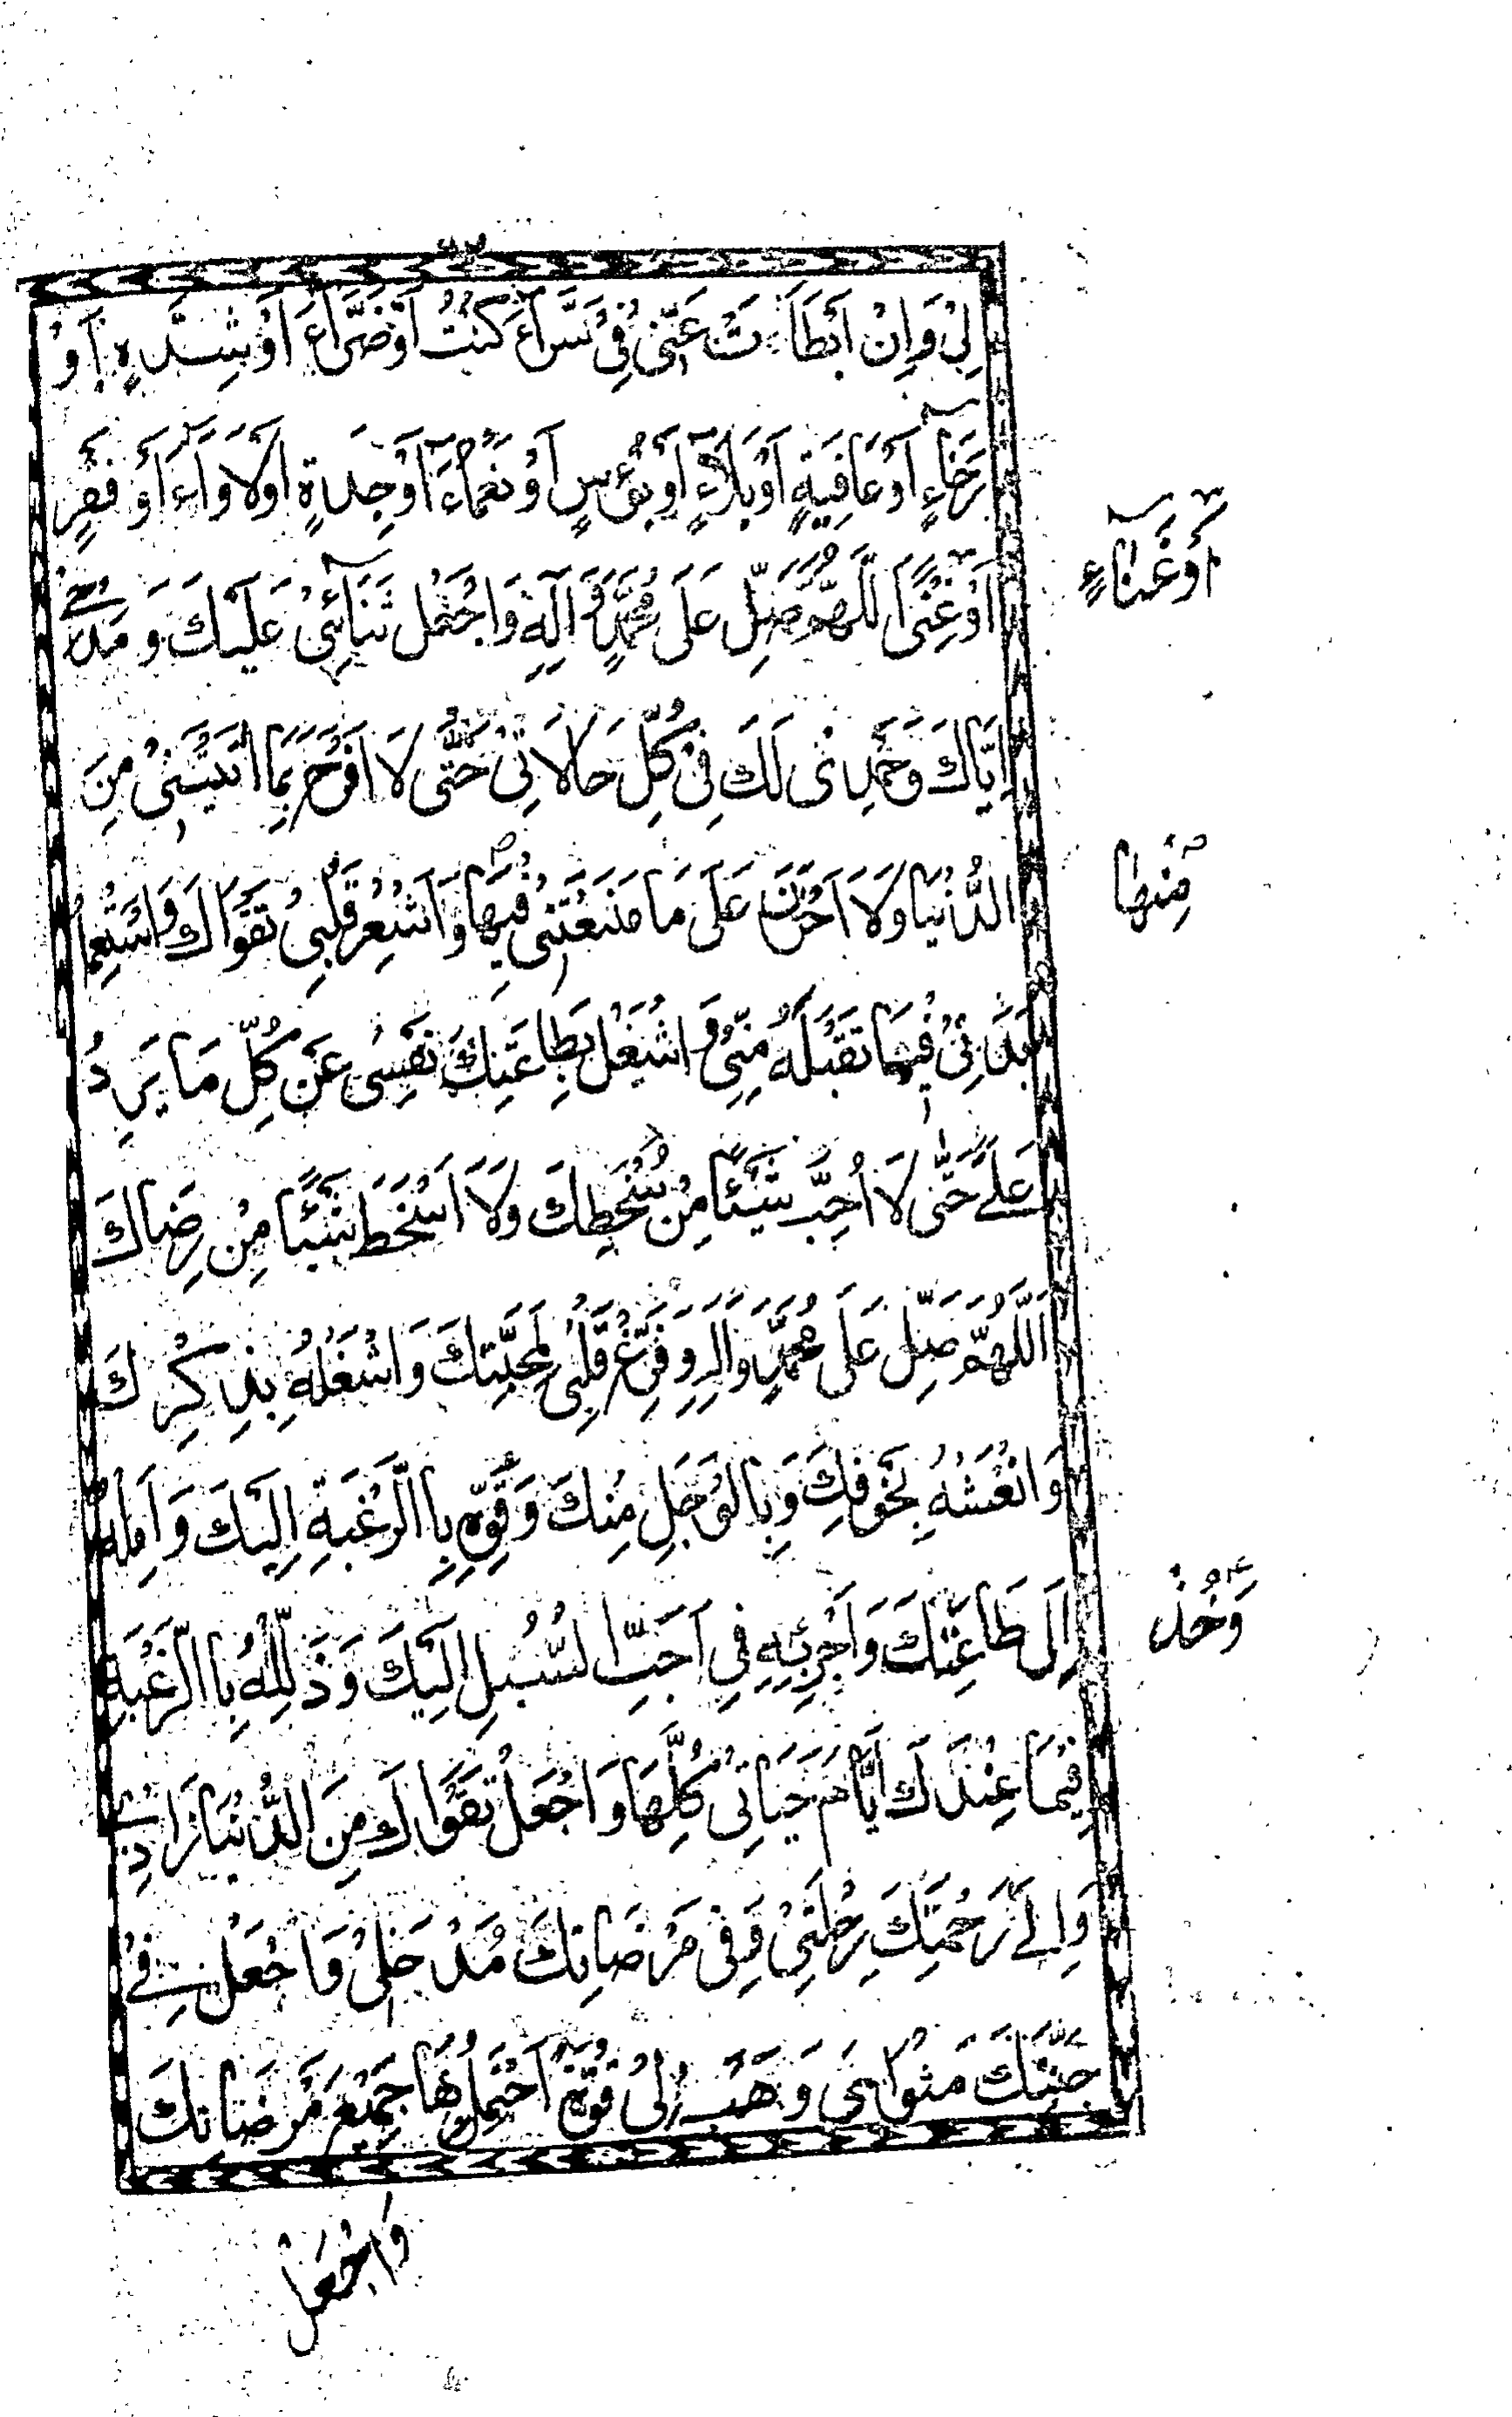 لِىْ وَاِنْ اَبْطَاَتْ عَنِّىْ فِىْ سَرَّآءَ كُنْتُ اَوْ ضَرَّآءَ اَوْ شِدَّةٍ اَوْ
رَخَآءٍ اَوْ عَافِيَةٍ اَوْ بَلَآءٍ اَوْ بُؤْسٍ اَوْ نَعْمَآءَ اَوْ جِدَةٍ اَوْ لَاْوَآءَ اَوْ فَقْرٍ
اَوْ غِنًى اَللّٰهُمَّ صَلِّ عَلَى مُحَمَّدٍ وَّاٰلِهٖ وَاجْعَلْ ثَنَآئِىْ عَلَيْكَ وَمَدْحِىْ
اَوْ غَنَآءٍ
اِيَّاكَ وَحَمْدِىْ لَكَ فِىْ كُلِّ حَالَاتِىْ حَتّٰى لَا اَفْرَحَ بِمَا اٰتَيْتَنِىْ مِنَ
الدُّنْيَا وَلَا اَحْزَنَ عَلَى مَا مَنَعْتَنِىْ فِيْهَا وَاَشْعِرْ قَلْبِىْ تَقْوَاكَ وَاسْتَعْمِلْ
مِنْهَا
بَدَنِىْ فِيْمَا تَقْبَلُهُ مِنِّىْ وَاشْغَلْ بِطَاعَتِكَ نَفْسِىْ عَنْ كُلِّ مَا يَرِدُ
عَلَىَّ حَتّٰى لَا اُحِبَّ شَيْئًا مِنْ سُخْطِكَ وَلَا اَسْخَطَ شَيْئًا مِنْ رِضَاكَ
اَللّٰهُمَّ صَلِّ عَلَى مُحَمَّدٍ وَّاٰلِهٖ وَفَرِّغْ قَلْبِىْ لِمَحَبَّتِكَ وَاشْغَلْهُ بِذِكْرِكَ
وَانْعَشْهُ بِخَوْفِكَ وَبِالْوَجَلِ مِنْكَ وَقَوِّهٖ بِالرَّغْبَةِ اِلَيْكَ وَاَمِلْهُ
اِلَى طَاعَتِكَ وَاَجْرِبِهٖ فِىْ اَحَبِّ السُّبُلِ اِلَيْكَ وَذَلِّلْهُ بِالرَّغْبَةِ
وَخُذْ
فِيْمَا عِنْدَكَ اَيَّامَ حَيَاتِىْ كُلِّهَا وَاجْعَلْ تَقْوَاكَ مِنَ الدُّنْيَا زَادِىْ
وَاِلَى رَحْمَتِكَ رِحْلَتِىْ وَفِىْ مَرْضَاتِكَ مُدْخَلِىْ وَاجْعَلْ فِىْ
جَنَّتِكَ مَثْوَاىَ وَهَبْ لِىْ قُوَّةً اَحْتَمِلُ بِهَا جَمِيْعَ مَرْضَاتِكَ
وَاجْعَلْ